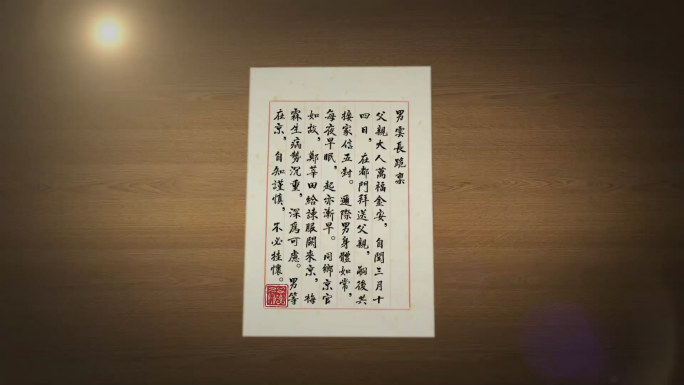 男雲長跪稟
父親大人萬福金安，自閏三月十
四日，在都門拜送父親，嗣後共
接家信五封。邇際男身體如常，
每夜早眠，起亦漸早。同鄉京官
如故，鄭莘田給諫服闋來京，梅
霖生病勢沉重，深為可慮。男等
在京，自知謹慎，不必挂懷。